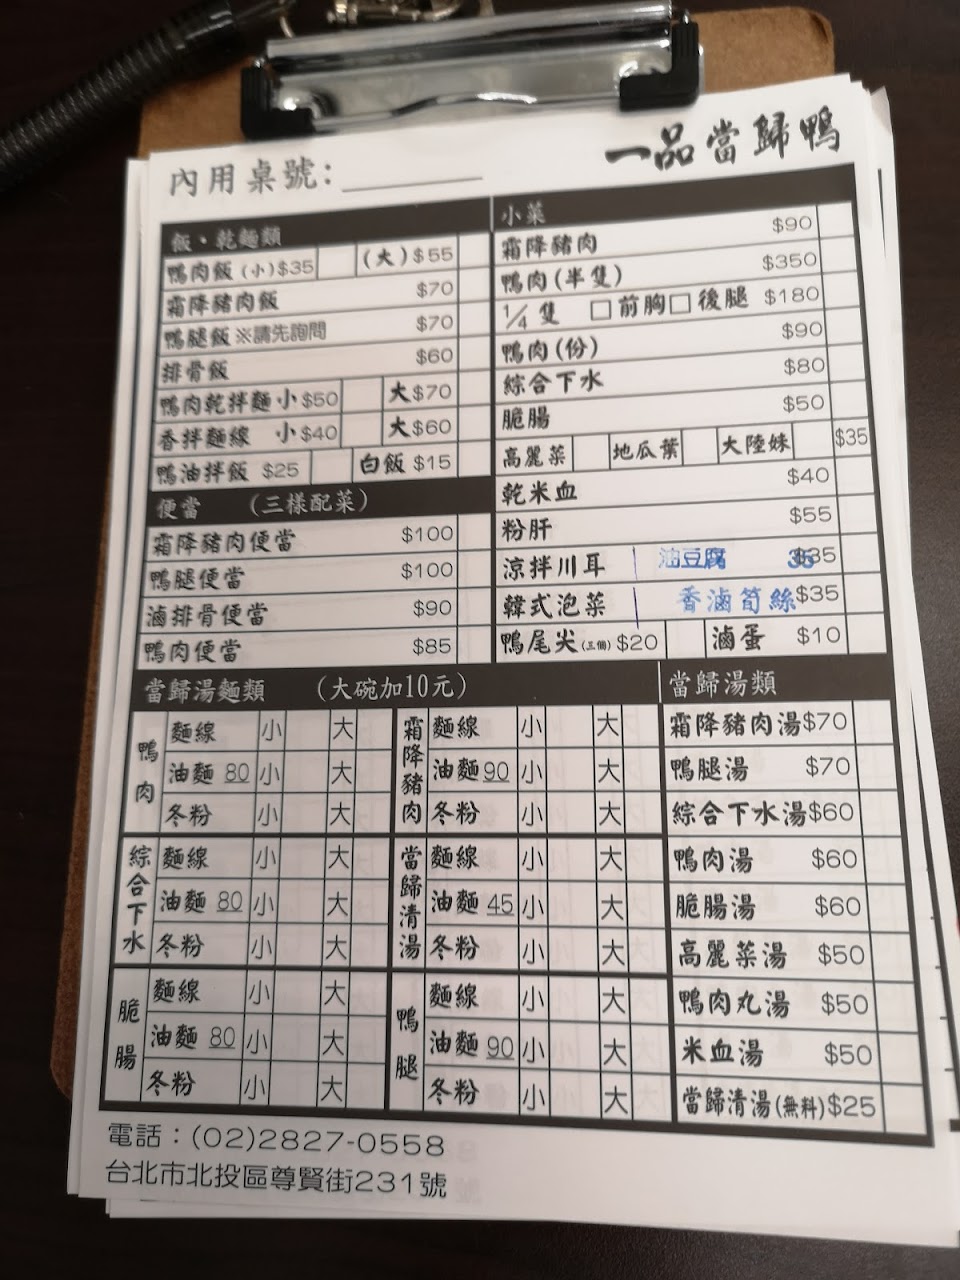 一品當歸鴨
內用桌號：
飯、乾麵類
鴨肉飯(小)$35 (大)$55
霜降豬肉飯 $70
鴨腿飯 ※請先詢問 $70
排骨飯 $60
鴨肉乾拌麵 小$50 大$70
香拌麵線 小$40 大$60
鴨油拌飯 $25 白飯 $15
便當 (三樣配菜)
霜降豬肉便當 $100
鴨腿便當 $100
滷排骨便當 $90
鴨肉便當 $85
小菜
霜降豬肉 $90
鴨肉(半隻) $350
1/4 隻 □前胸□後腿 $180
鴨肉(份) $90
綜合下水 $80
脆腸 $50
高麗菜 地瓜葉 大陸妹 $35
乾米血 $40
粉肝 $55
涼拌川耳 油豆腐 35 $35
韓式泡菜 香滷筍絲 $35
鴨尾尖(三個)$20 滷蛋 $10
當歸湯麵類 (大碗加10元)
鴨肉
麵線 小 大
油麵 80 小 大
冬粉 小 大
綜合下水
麵線 小 大
油麵 80 小 大
冬粉 小 大
脆腸
麵線 小 大
油麵 80 小 大
冬粉 小 大
霜降豬肉
麵線 小 大
油麵 90 小 大
冬粉 小 大
當歸清湯
麵線 小 大
油麵 45 小 大
冬粉 小 大
鴨腿
麵線 小 大
油麵 90 小 大
冬粉 小 大
當歸湯類
霜降豬肉湯$70
鴨腿湯 $70
綜合下水湯$60
鴨肉湯 $60
脆腸湯 $60
高麗菜湯 $50
鴨肉丸湯 $50
米血湯 $50
當歸清湯(無料)$25
電話：(02)2827-0558
台北市北投區尊賢街231號